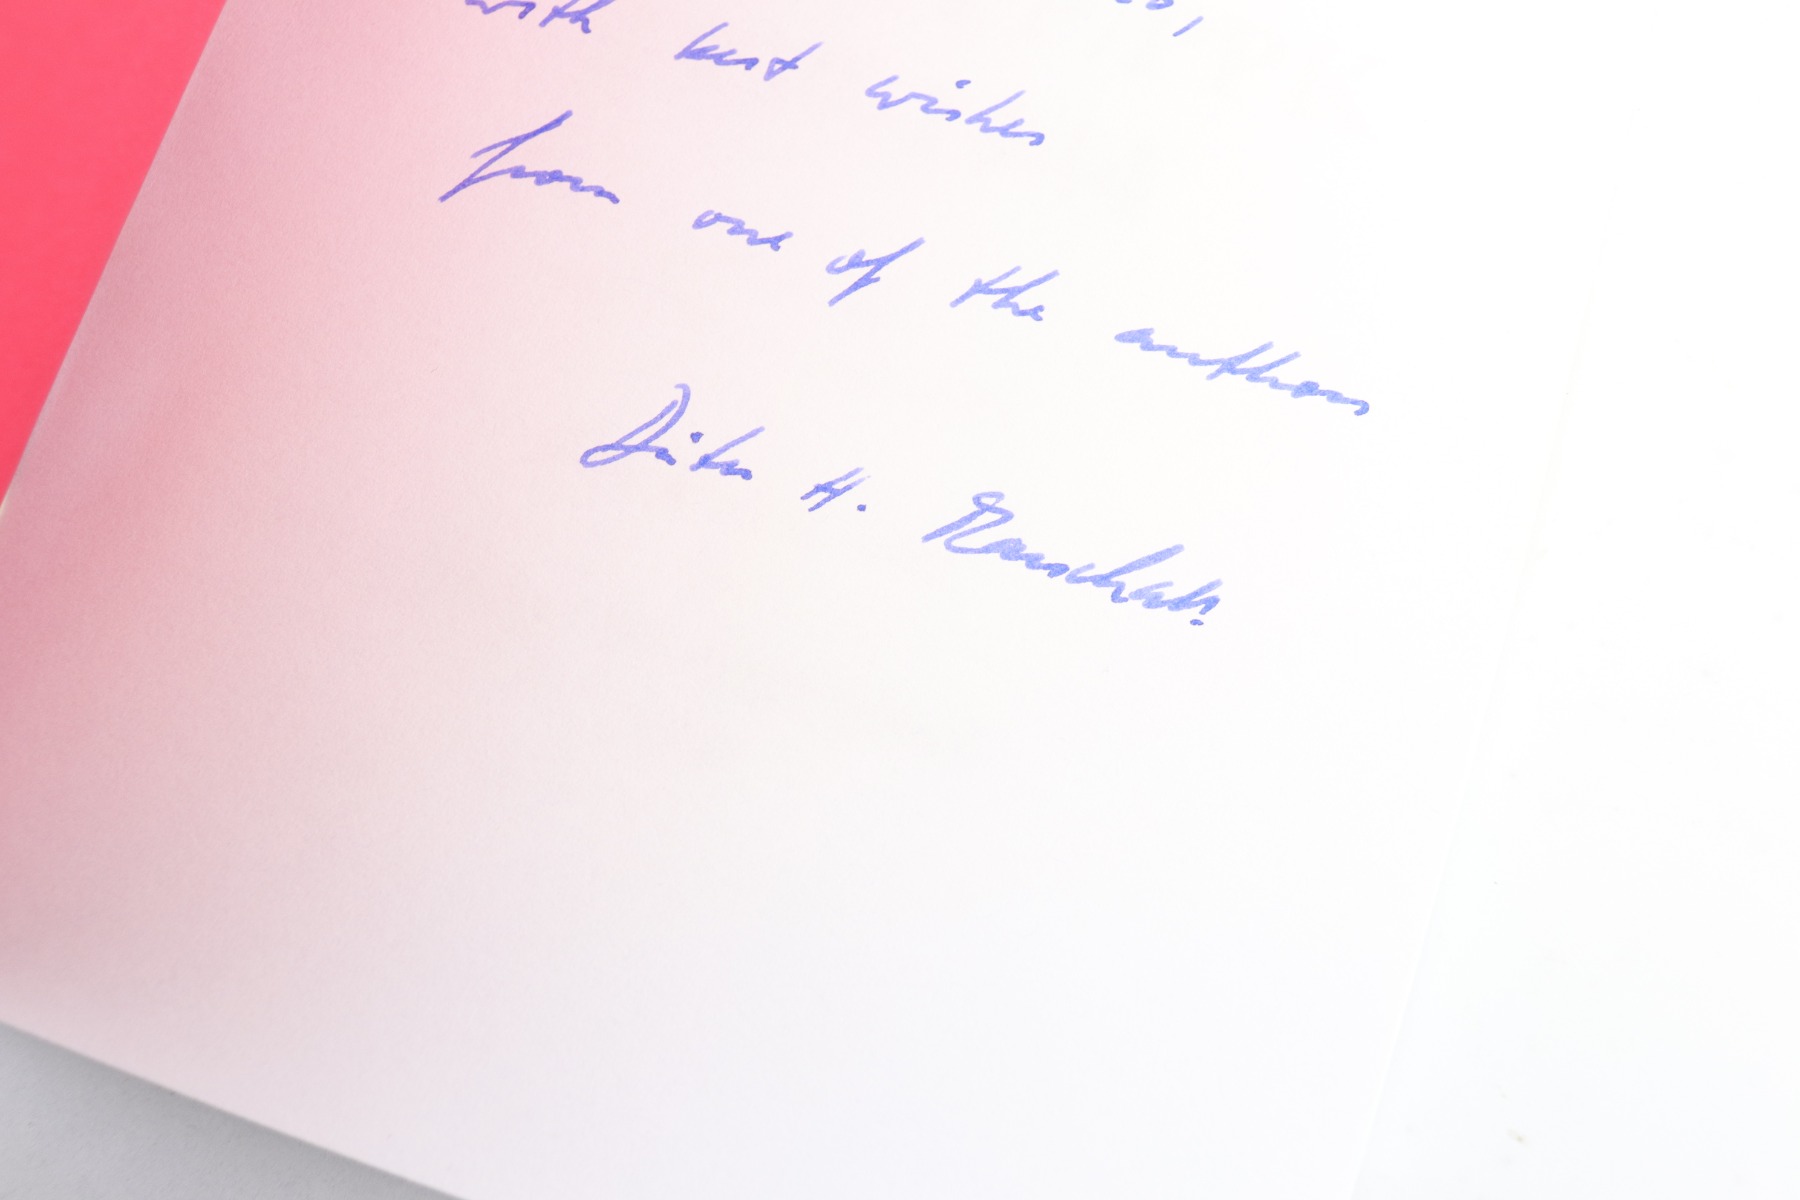 with best wishes
from one of the authors
Dieter H.